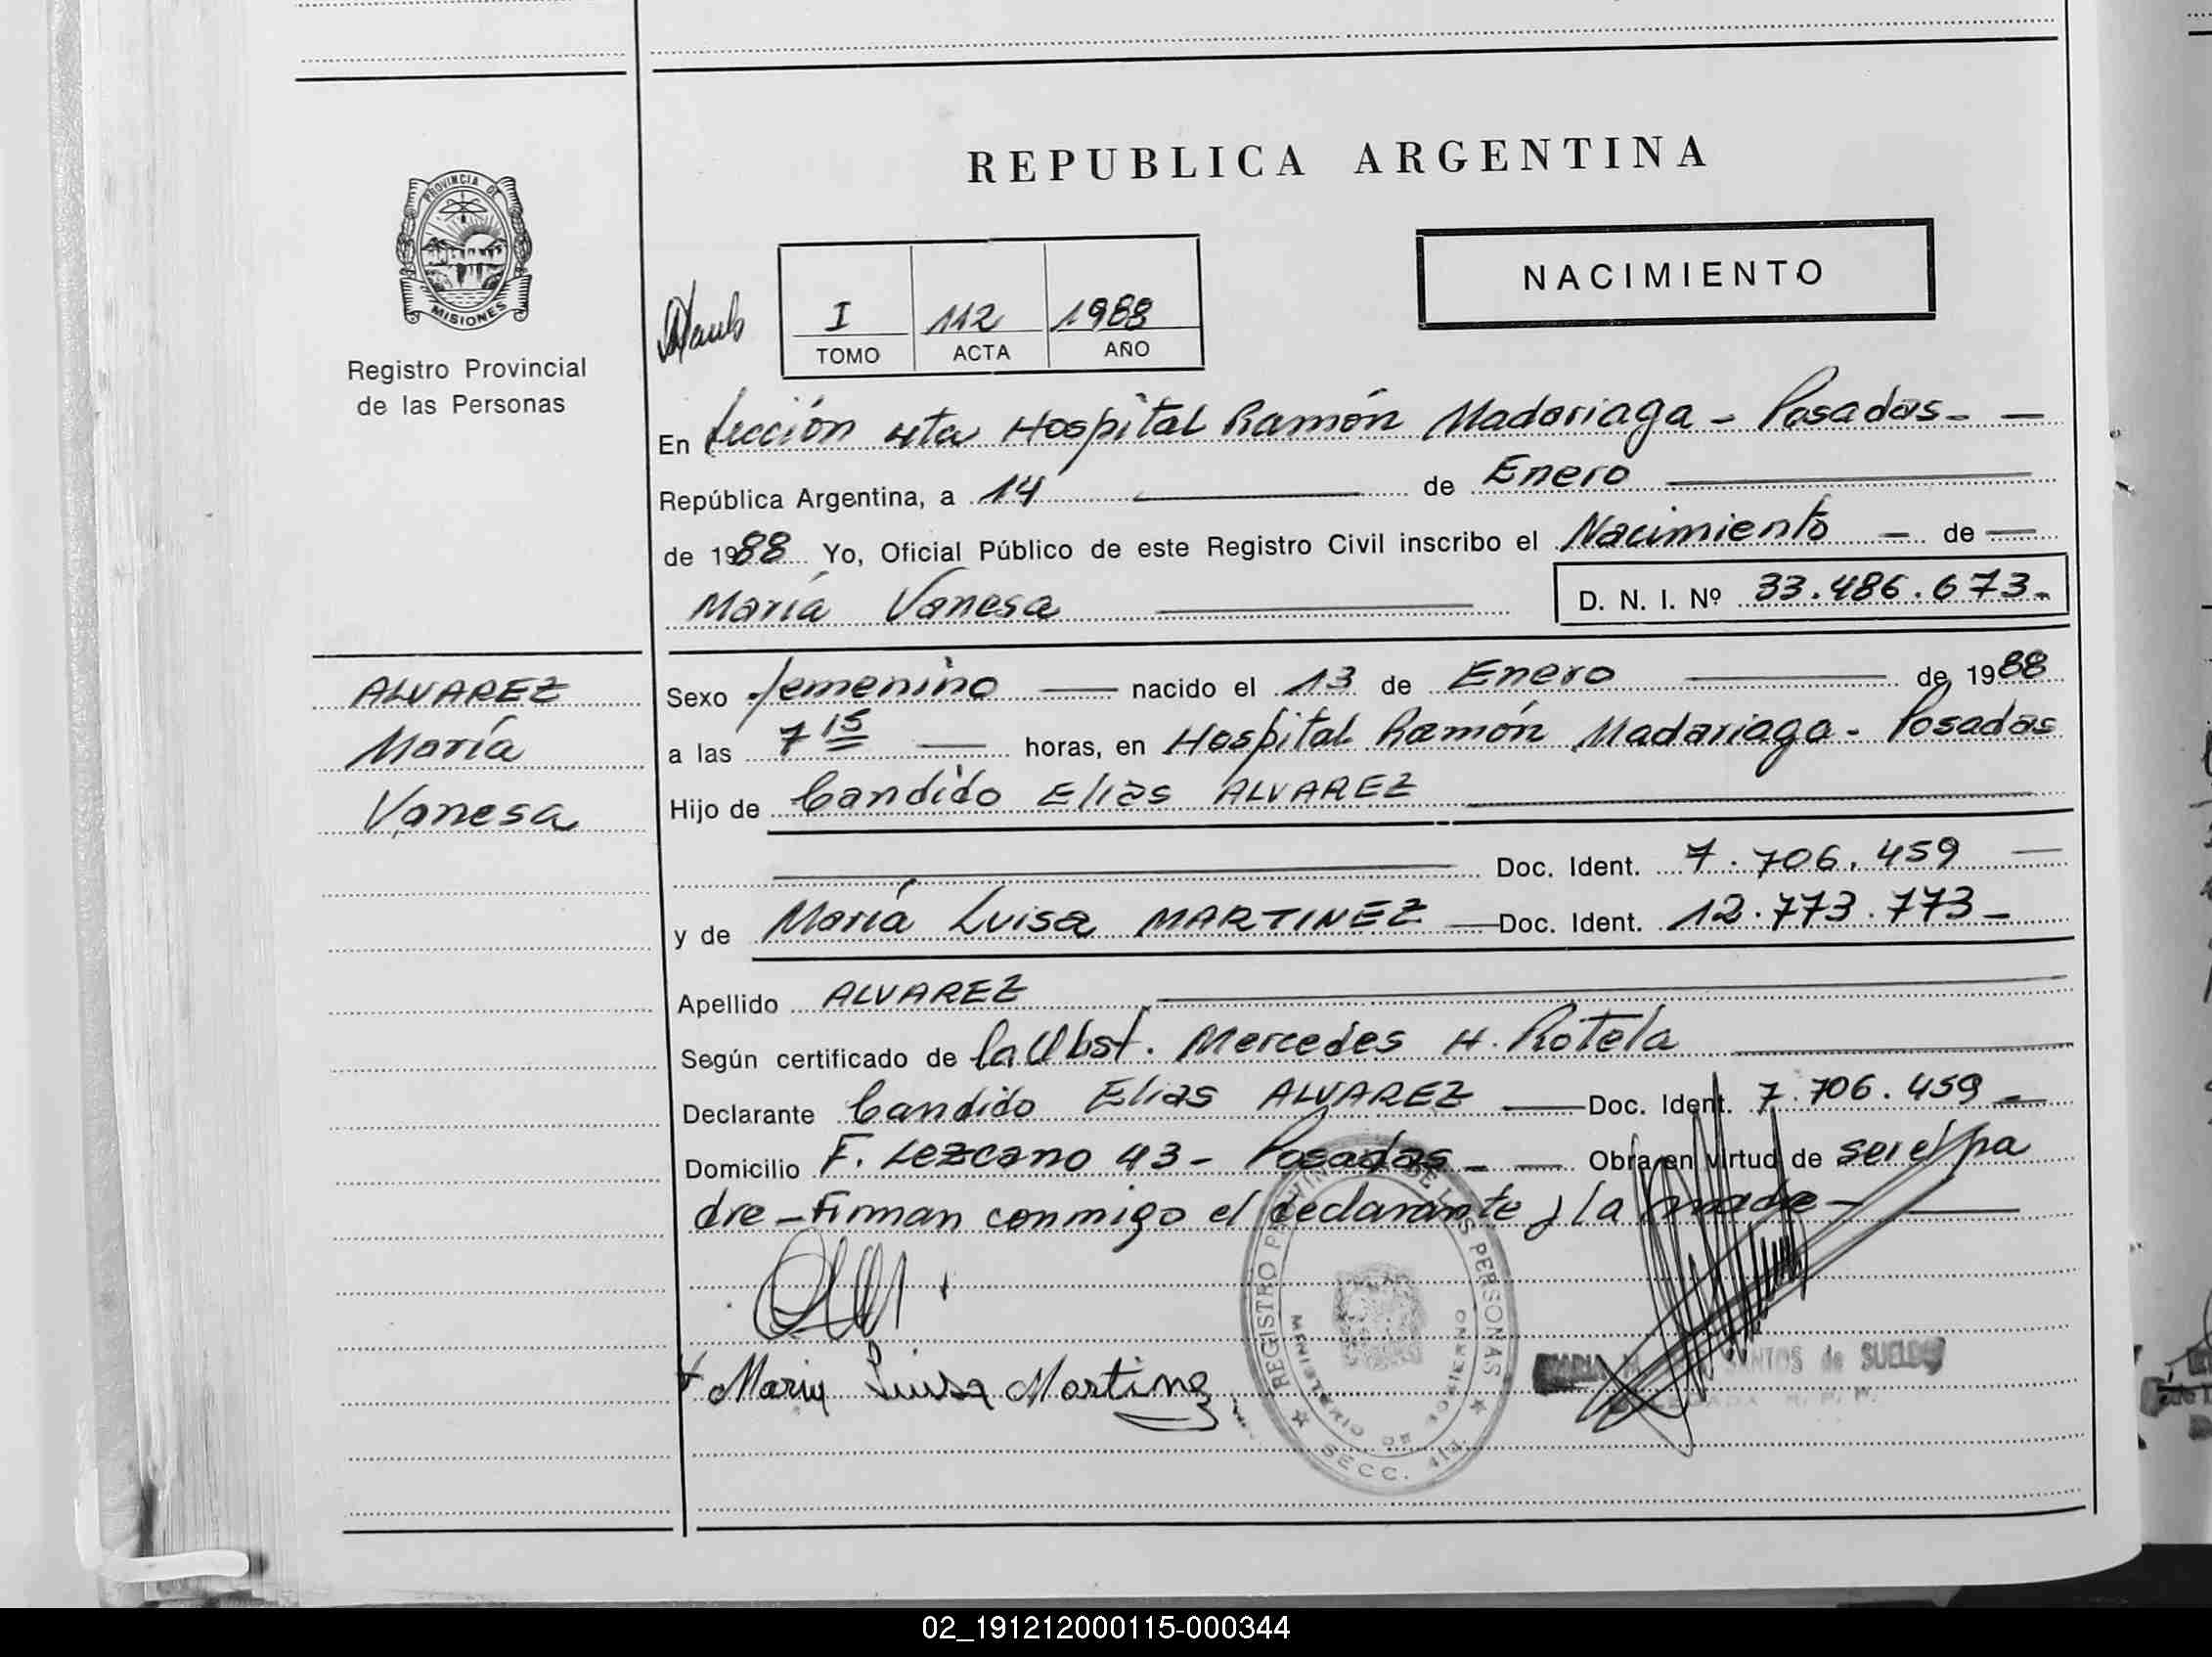 REPUBLICA ARGENTINA
PROVINCIA DE
MISIONES
Registro Provincial
de las Personas
NACIMIENTO
I 112 1988
TOMO ACTA AÑO
En Sección 4ta Hospital Ramón Madariaga - Posadas - —
República Argentina, a 14 — de Enero —
de 1988 Yo, Oficial Público de este Registro Civil inscribo el Nacimiento — de —
María Vanesa — D. N. I. Nº 33.486.673-
ALVAREZ
María
Vanesa
Sexo femenino — nacido el 13 de Enero — de 1988
a las 7 15 — horas, en Hospital Ramón Madariaga - Posadas
Hijo de Candido Elias ALVAREZ —
— Doc. Ident. 7.706.459 —
y de María Luisa MARTINEZ — Doc. Ident. 12.773.773 -
Apellido ALVAREZ —
Según certificado de la Obst. Mercedes H. Rotela —
Declarante Candido Elias ALVAREZ — Doc. Ident. 7.706.459 -
Domicilio F. Lezcano 43 - Posadas - — Obra en virtud de ser el pa
dre - Firman conmigo el declarante y la madre - —
Maria Luisa Martinez
REGISTRO PROVINCIAL DE LAS PERSONAS
MINISTERIO DE GOBIERNO
SECC. 4ta.
MARIA M. SANTOS de SUELDO
02_191212000115-000344